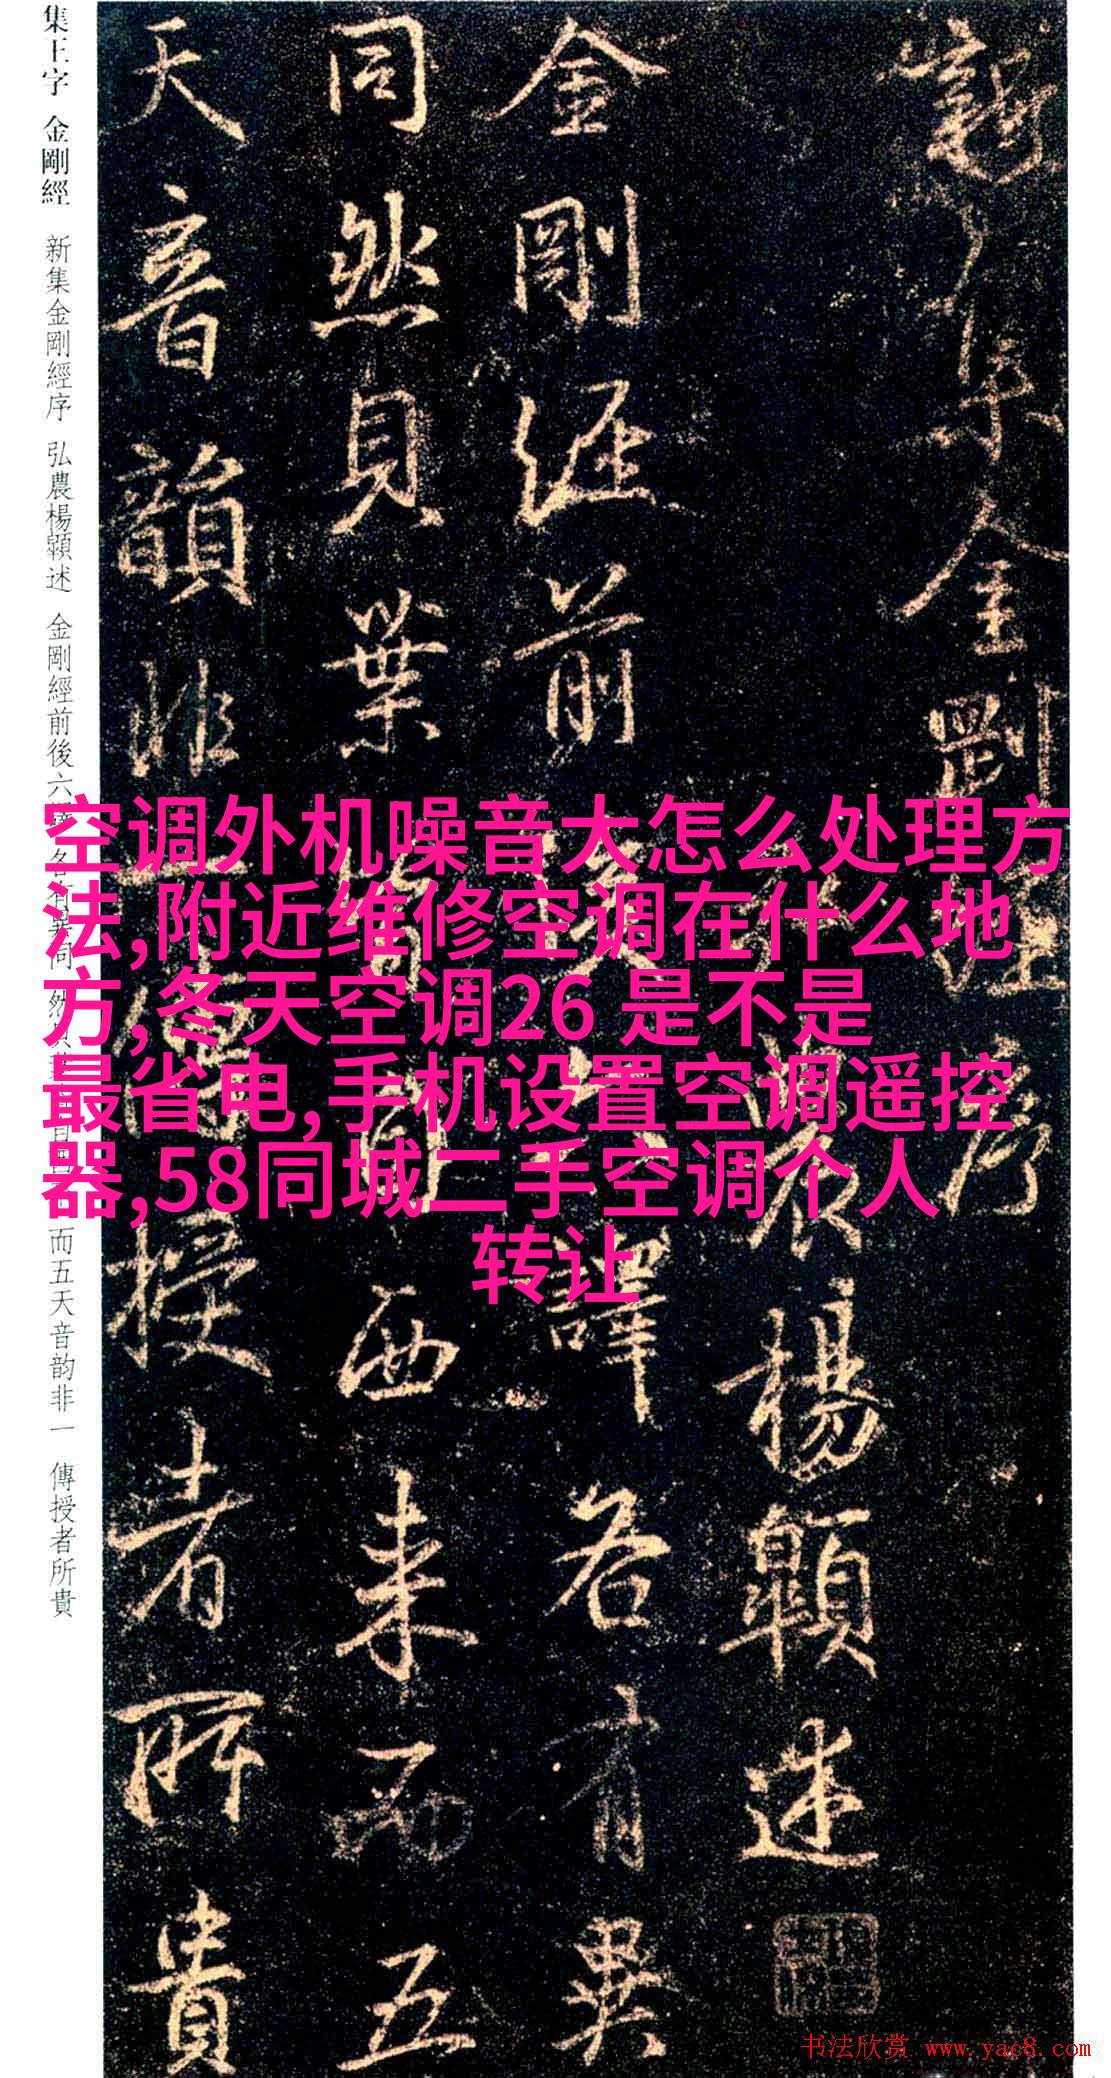 新集金剛經序
農楊述
金剛經前譯各有異
同然貝葉西来而五
天音韻非傳授者所貴
集王字 金剛經 新集金剛經序 弘農楊述 金剛經前後六各有異同 然貝而五天音韵非一 傳授者所貴
空调外机噪音大怎么处理方
法,附近维修空调在什么地
方,冬天空调26 是不是
最省电,手机设置空调遥控
器,58同城二手空调个人
转让
书法欣赏 www.yac8.com